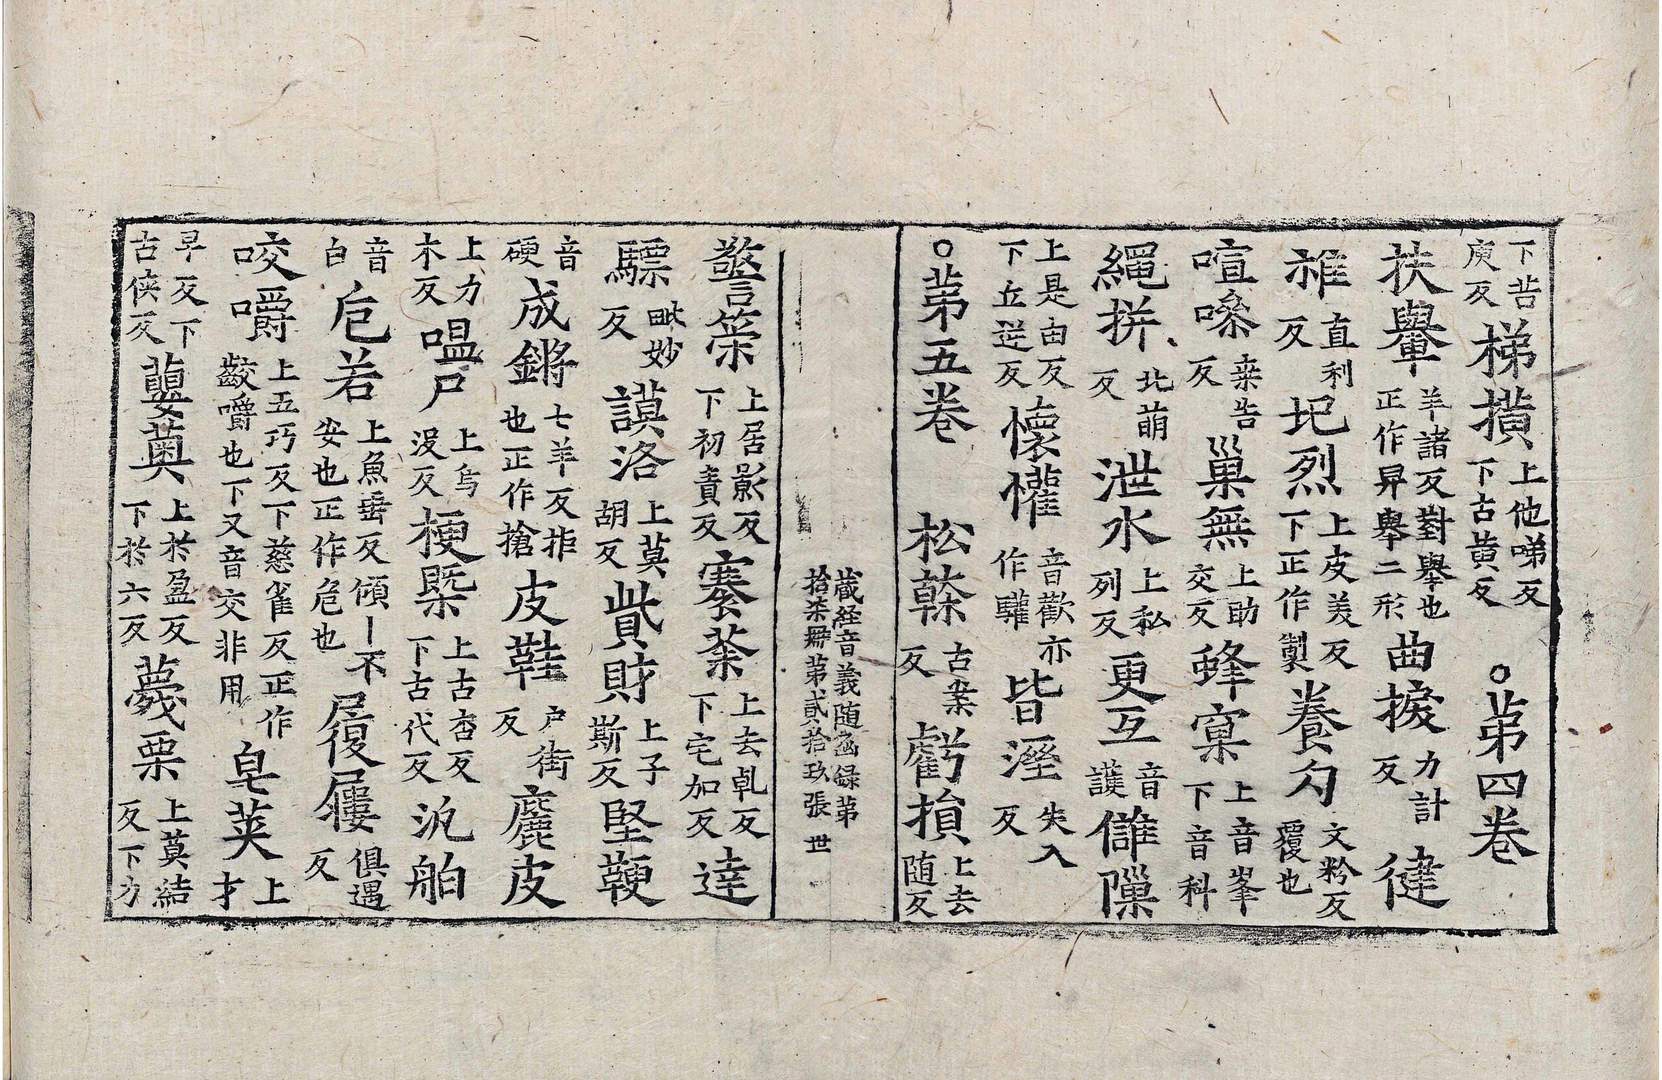 下苦庾反梯撗上他啼反下古黄反○苐四卷
扶轝羊諸反對舉也正作舁舉二形曲捩力計反㨗
褂直利反圮烈上皮美反下正作製養勽文粉反覆也
喧喿桒告反巢無上助交反蜂窠上音峯下音科
繩拼北萠反泄水上私列反更互音護讎隟
上是由反下丘逆反懷㰌音歡亦作驩皆溼失入反
○苐五卷 松榦古案反虧損上去随反
蔵経音義随凾録苐拾柒冊苐貳拾玖張 世
警策上居影反下初責反褰荼上去乹反下宅加反達
驃毗妙反謨洛上莫胡反貲財上子斯反堅鞕
音硬成鏘七羊反拒也正作搶皮鞋户街反麤皮
上力木反嗢尸上烏没反梗槩上古杏反下古代反汎舶
音白卮若上魚垂反傾丨不安也正作危也屨屨俱遇反
咬嚼上五巧反下慈雀反正作齩嚼也下又音交非用皁莢上才
早反下古侠反蘡薁上於盈反下於六反薎栗上莫結反下力